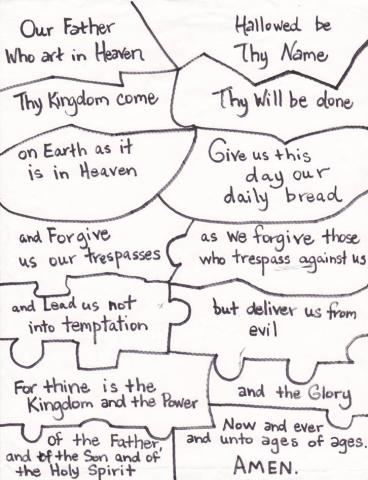 Our Father
Who art in Heaven
Hallowed be
Thy Name
Thy Kingdom come
Thy Will be done
on Earth as it
is in Heaven
Give us this
day our
daily bread
and Forgive
us our trespasses
as we forgive those
who trespass against us
and Lead us not
into temptation
but deliver us from
evil
For thine is the
Kingdom and the Power
and the Glory
of the Father
and of the Son and of
the Holy Spirit
Now and ever
and unto ages of ages.
AMEN.